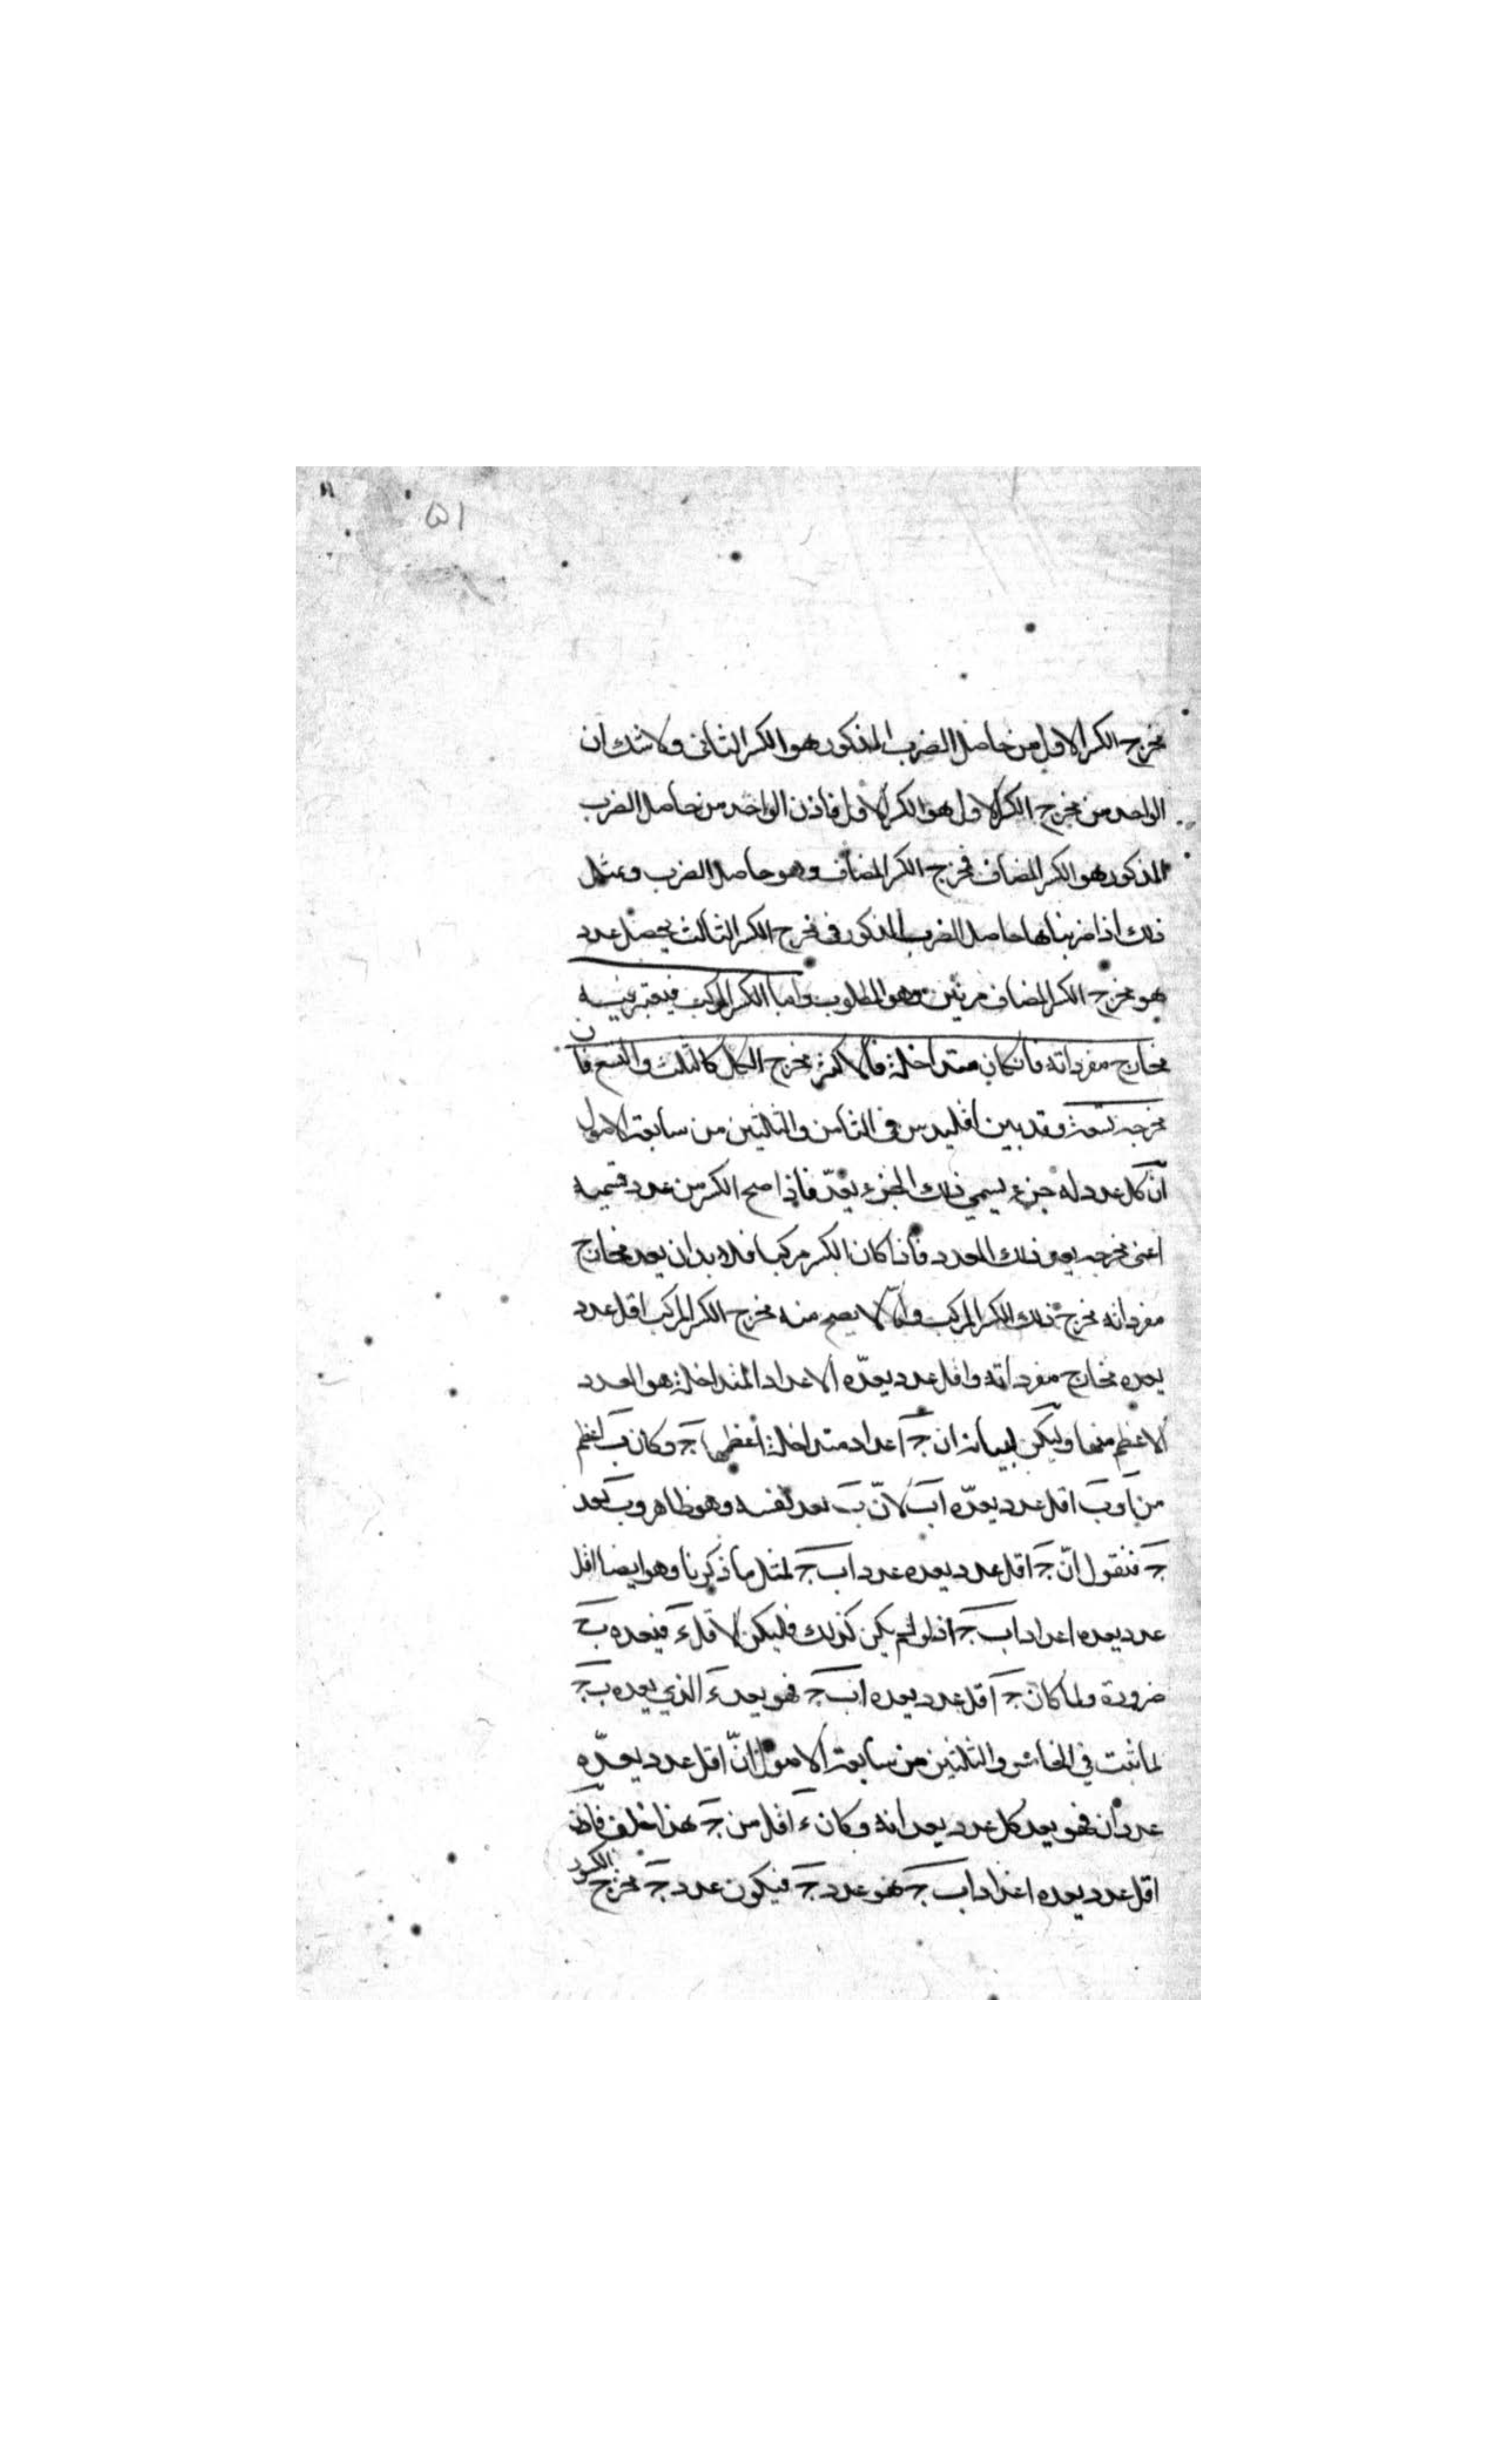 ٥١
مخرج الكسر الاول من حاصل الضرب المذكور هو الكسر الثانى ولا شك ان
الواحد من مخرج الكسر الاول هو الكسر الاول فاذن الواحد من حاصل الضرب
المذكور هو الكسر المضاف فمخرج الكسر المضاف وهو حاصل الضرب وبمثل
ذلك اذا ضربنا حاصل الضرب المذكور فى مخرج الكسر الثالث يحصل عدد
هو مخرج الكسر المضاف مرتين وهو المطلوب واما الكسر المركب فيعتبر فيه
مخارج مفرداته فان كان متداخلة فالاكثر مخرج الكل كالثلث والتسع فان
مخرجه تسعة وقد بين اقليدس فى الثامن والثلثين من سابعة الاصول
انّ كل عدد له جزء يسمى ذلك الجزء يعدّ فاذا صح الكسر من عدد فسميه
اعنى مخرجه يعد ذلك العدد فاذا كان الكسر مركبا فلا بد ان يعد مخارج
مفرداته مخرج ذلك الكسر المركب والّا لا يصح منه مخرج الكسر المركب اقل عدد
يعده مخارج مفرداته واقل عدد يعدّه الاعداد المتداخلة هو العدد
الاعظم منها وليكن لبيانه ان ا ب ج اعداد متداخلة اعظمها ج وكان ب اعظم
من ا و ب اقل عدد يعدّه ا ب لانّ ب يعد نفسه وهو ظاهر و ب يعد
ج فنقول انّ ج اقل عدد يعده عدد ا ب ج لمثل ما ذكرنا وهو ايضا اقل
عدد يعده اعداد ا ب ج اذ لو لم يكن كذلك فليكن الاقل ء فيعده ب ج
ضرورة ولما كان ج اقل عدد يعده ا ب ج فهو يعد ء الذي يعده ب ج
لما ثبت في الخامس والثلثين من سابعة الاصول انّ اقل عدد يعدّه
عددان فهو يعد كل عدد يعدانه وكان ء اقل من ج هذا خلف فاذن
اقل عدد يعده اعداد ا ب ج هو عدد ج فيكون عدد ج مخرج الكسور